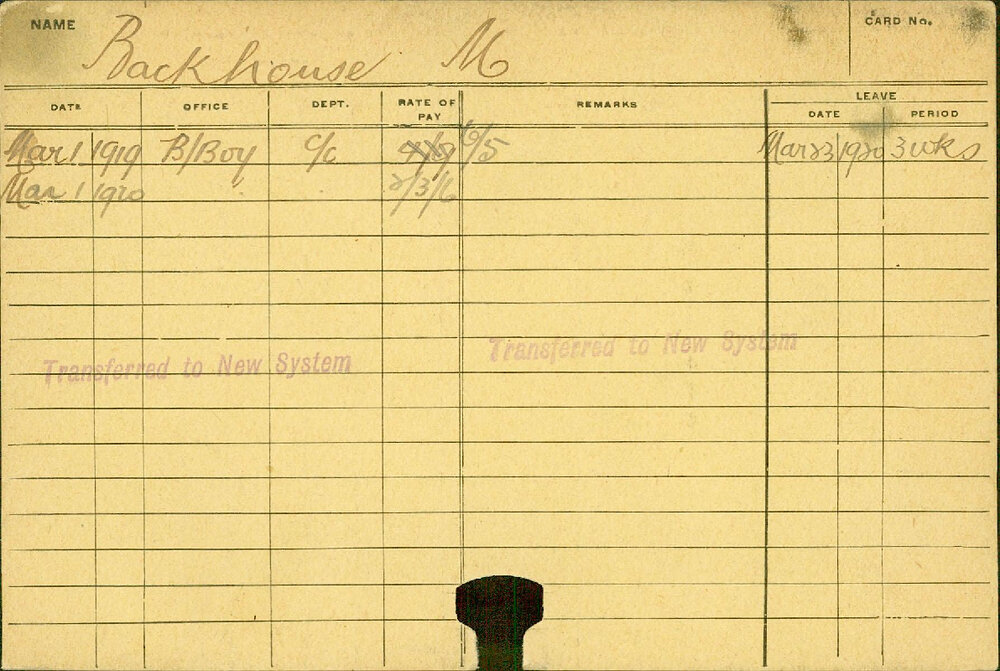 NAME Backhouse M CARD No.
DATE OFFICE DEPT. RATE OF PAY REMARKS LEAVE
DATE PERIOD
Mar 1 1919 B/Boy C/C 10/5 Mar 23 1920 3 wks
Mar 1 1920 " " 2/3/6
Transferred to New System Transferred to New System